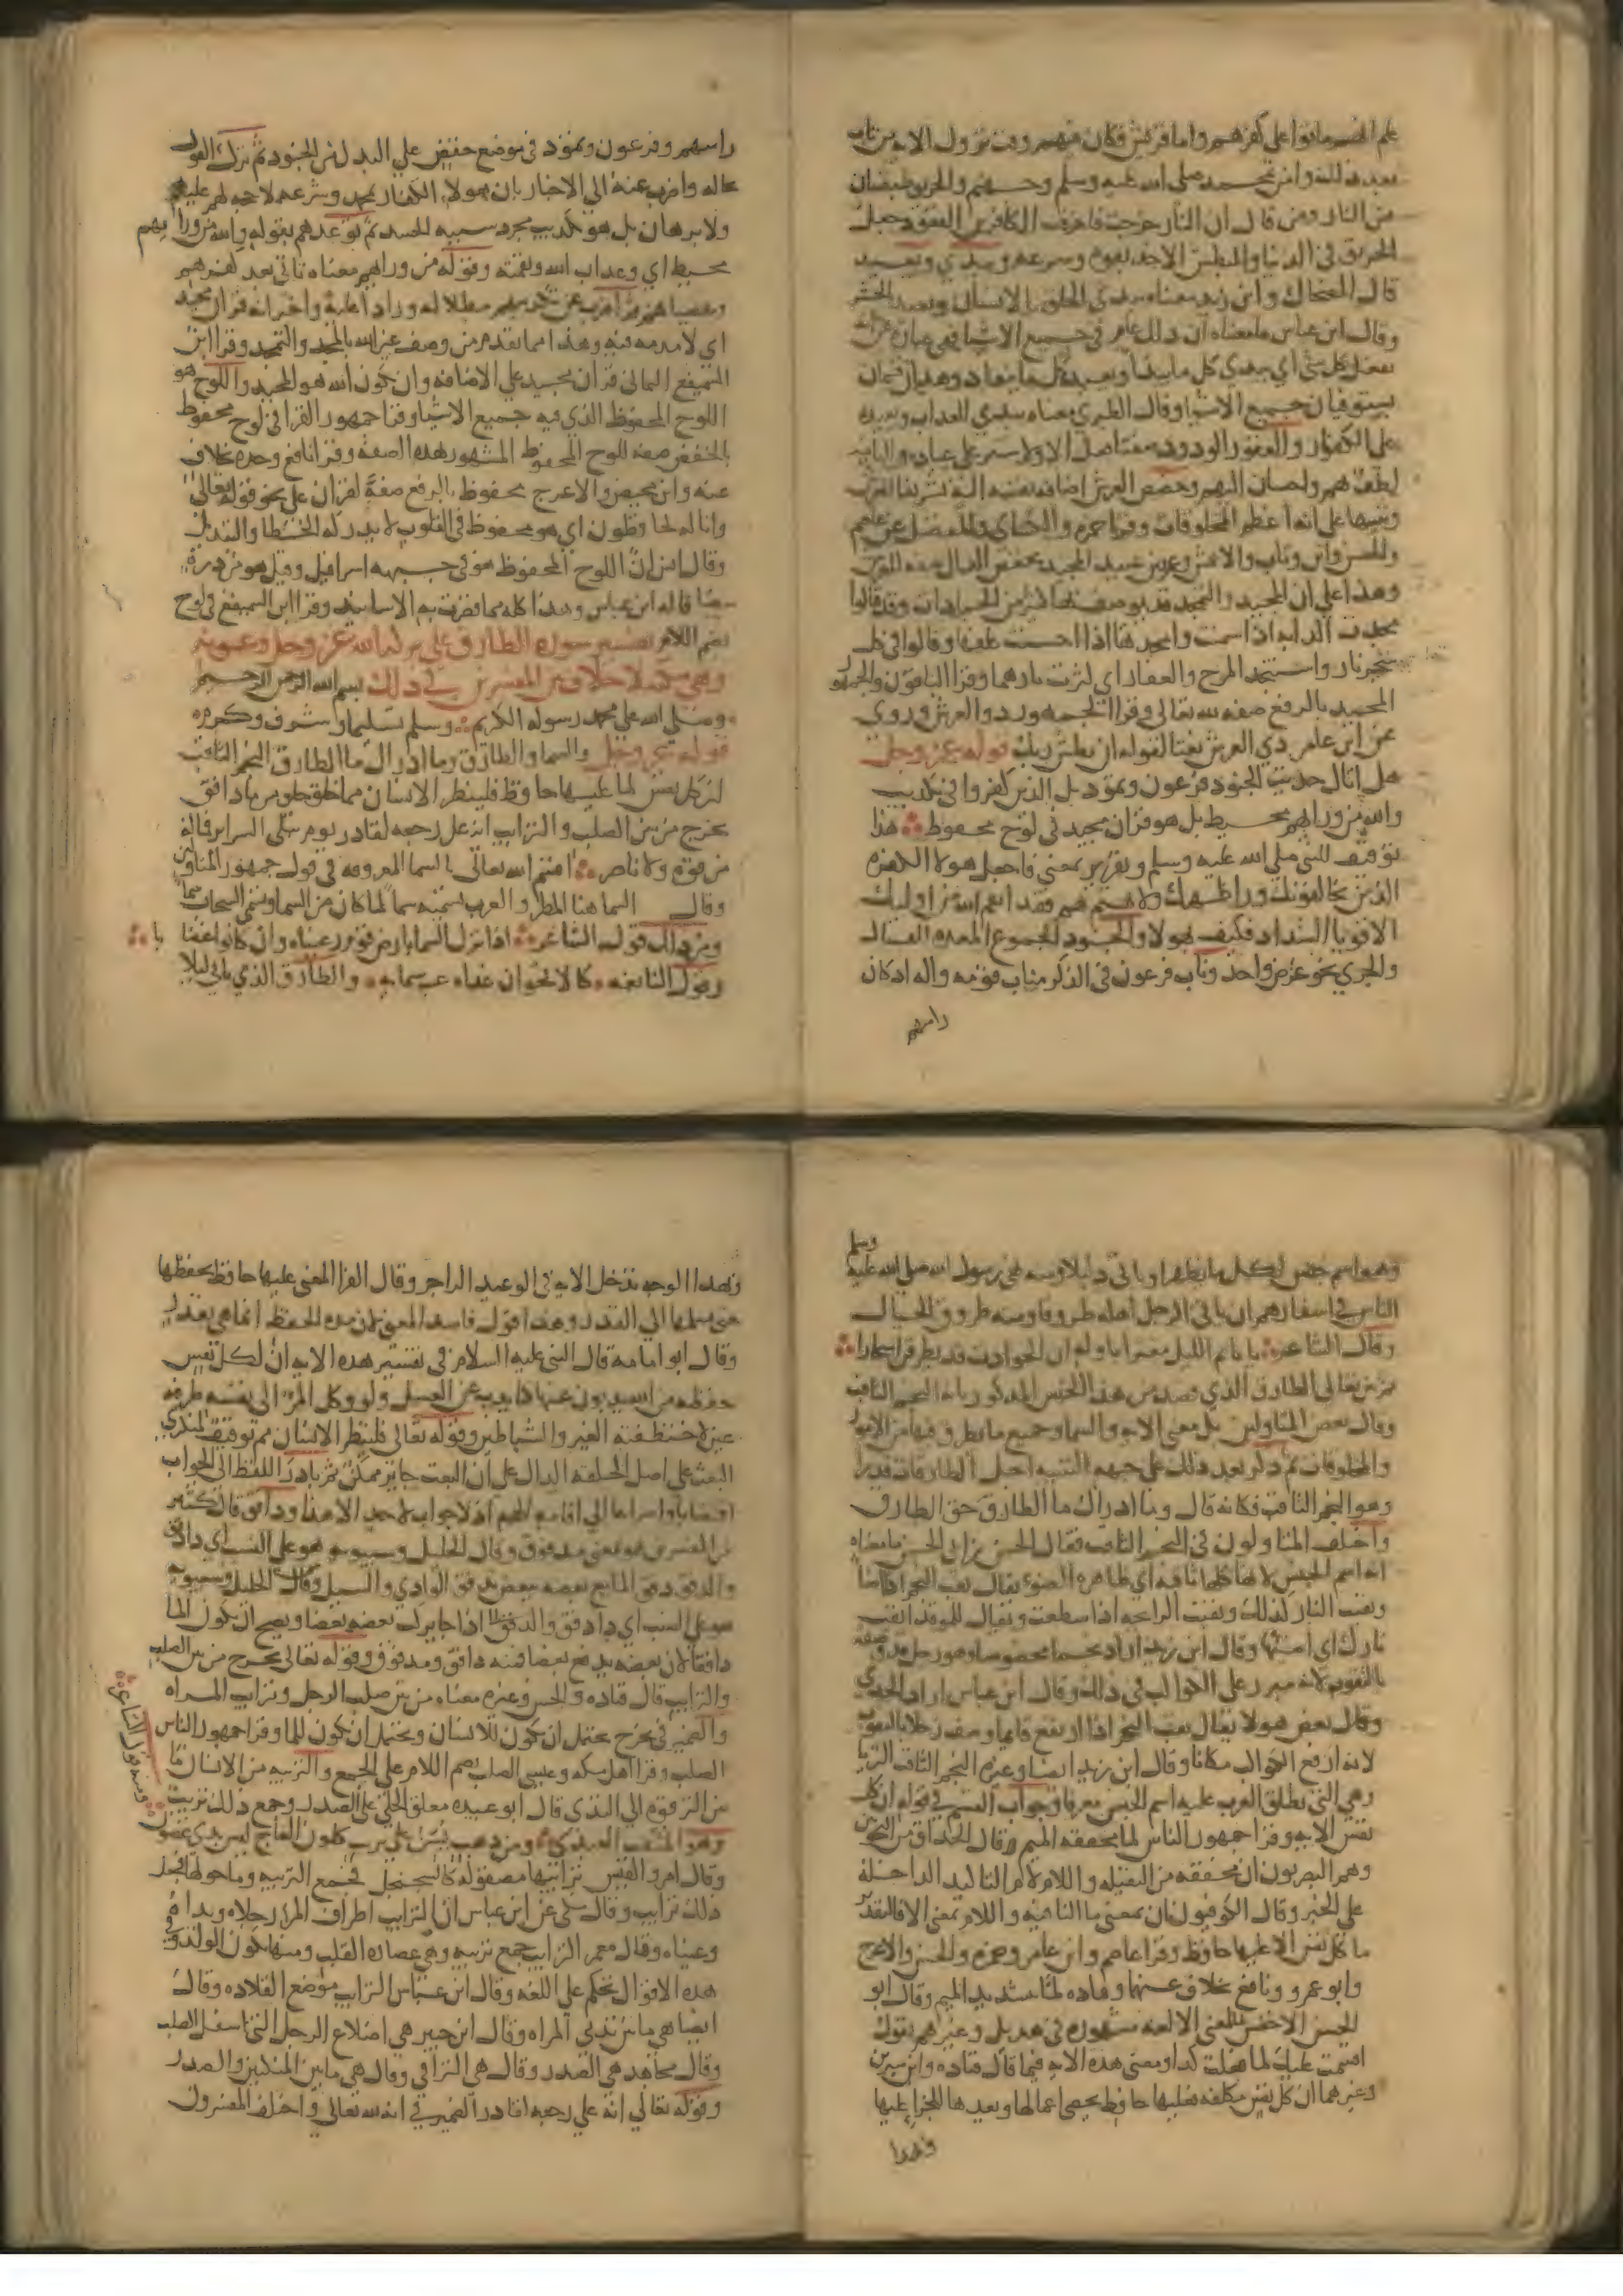 علم انهم ماتوا على كفرهم واما قريش فكان فيهم وقت نزول الايه من تاب
بعد ذلك وامن بمحمد صلى الله عليه وسلم وجهنم والحريق طبقتان
من النار ومن قال ان النار خرجت فاحرقت الكافرين القعود جعل
الحريق في الدنيا والبطش الاخذ بقوه وسرعه ويبدي ويعيد
قال الضحاك وابن زيد معناه يبدي الخلق بالانشا ويعيد بالحشر
وقال ابن عباس ما معناه ان ذلك عام في جميع الاشيا فهي عباره عن انه
يفعل كل شي اي يبدي كل ما يبدا ويعيد كل ما يعاد وهذان قسمان
يستوفيان جميع الاشيا وقال الطبري معناه يبدي العذاب ويعيده
على الكفار والغفور الودود صفتا فعل الاولى ستر على عباده والثانيه
لطف بهم واحسان اليهم وخصص العرش اضافه نفسه اليه تشريفا للعرش
وتنبيها على انه اعظم المخلوقات وقرا حمزه والكساي والمفضل عن عاصم
والحسن وابن وثاب والاعمش وعمرو بن عبيد المجيد بخفض الدال صفه للعرش
وهذا على ان المجد والتمجد قد يوصف بها كثير من الجمادات وقد قالوا
مجدت الدابه اذا سمنت وامجدتها اذا احسنت علفها وقالوا في كل
شجر نار واستمجد المرخ والعفار اي كثرت نارهما وقرا الباقون والجمهور
المجيد بالرفع صفه لله تعالى وقرا الجمهور ذو العرش وروي
عن ابن عامر ذي العرش نعتا لقوله ان بطش ربك قوله عز وجل
هل اتاك حديث الجنود فرعون وثمود بل الذين كفروا في تكذيب
والله من ورايهم محيط بل هو قران مجيد في لوح محفوظ هذا
توقيف للنبي صلى الله عليه وسلم وتقرير بمعنى فاجعل هولا الكفره
الذين يخالفونك ورا ظهرك ولا تهتم بهم فقد انتقم الله من اوليك
الاقويا الشداد فكيف بهولا والجنود الجموع المعده للقتال
والجري نحو غرض واحد وناب فرعون في الذكر مناب قومه واله اذ كان
راسهم
راسهم وفرعون وثمود في موضع خفض على البدل من الجنود ثم ترك القول
بحاله واضرب عنه الى الاخبار بان هولا الكفار بمحمد وشرعه لا حجه لهم عليه
ولا برهان بل هو تكذيب مجرد سببه الحسد ثم توعدهم بقوله والله من ورايهم
محيط اي وعذاب الله ونقمته وقوله من ورايهم معناه ما ياتي بعد كفرهم
وعصيانهم ثم اضرب عن تكذيبهم مبطلا له ورادا عليه واخبر انه قران مجيد
اي لا مذمه فيه وهذا مما تقدم من وصف غير الله بالمجد والتمجد وقرا ابن
السميفع اليماني قران مجيد على الاضافه وان يكون الله هو المجيد واللوح هو
اللوح المحفوظ الذي فيه جميع الاشيا وقرا جمهور القرا في لوح محفوظ
بالخفض صفه للوح المحفوظ المشهور بهذه الصفه وقرا نافع وحده بخلاف
عنه وابن محيصن والاعرج محفوظ بالرفع صفة لقران على نحو قوله تعالى
وانا له لحافظون اي هو محفوظ في القلوب لا يدركه الخطا والتبديل
وقال انس ان اللوح المحفوظ هو في جبهه اسرافيل وقيل هو من دره
بيضا قاله ابن عباس وهذا كله مما قصرت به الاسانيد وقرا ابن السميفع في لوح
بضم اللام تفسير سوره الطارق على بركه الله عز وجل وعونه
وهي مكيه لا خلاف بين المفسرين في ذلك بسم الله الرحمن الرحيم
وصلى الله على محمد رسوله الكريم وسلم تسليما وشرف وكرم
قوله عز وجل والسما والطارق وما ادراك ما الطارق النجم الثاقب
ان كل نفس لما عليها حافظ فلينظر الانسان مم خلق خلق من ما دافق
يخرج من بين الصلب والترايب انه على رجعه لقادر يوم تبلى السراير فما له
من قوه ولا ناصر اقسم الله تعالى بالسما المعروفه في قول جمهور المتاولين
وقال السما هنا المطر والعرب تسميه سما لما كان من السما وتسمي السحاب سما
ومن ذلك قول الشاعر اذا نزل السما بارض قوم رعيناه وان كانوا غضابا
وقول النابغه كالاقحوان غداه غب سمايه والطارق الذي ياتي ليلا
وهو اسم جنس لكل ما يظهر او ياتي ليلا ومنه نهي رسول الله صلى الله عليه وسلم
الناس في اسفارهم ان ياتي الرجل اهله طروقا ومنه طروق الخيال
وقال الشاعر يا نايم الليل مغترا باوله ان الحوادث قد يطرقن اسحارا
ثم بين تعالى الطارق الذي قصد من هذا الجنس المذكور بانه النجم الثاقب
وقال بعض المتاولين بل معنى الايه والسما وجميع ما يطرق فيها من الامور
والمخلوقات ثم ذكر بعد ذلك على جهه التنبيه اجل الطارقات قدرا
وهو النجم الثاقب فكانه قال وما ادراك ما الطارق حق الطارق
واختلف المتاولون في النجم الثاقب فقال الحسن بن ابي الحسن ما معناه
انه اسم الجنس لانها كلها ثاقبه اي ظاهره الضوء يقال ثقب النجم اذا اضا
وثقبت النار كذلك وثقبت الرايحه اذا سطعت ويقال للموقد اثقب
نارك اي اضيها وقال ابن زيد اراد نجما مخصوصا وهو زحل ووصفه
بالثقوب لانه مبرز على الكواكب في ذلك وقال ابن عباس اراد الجدي
وقال بعض هولا يقال ثقب النجم اذا ارتفع فانما وصف زحلا بالثقوب
لانه ارفع الكواكب مكانا وقال ابن زيد ايضا وغيره النجم الثاقب الثريا
وهي التي تطلق العرب عليه اسم الجنس معرفا وجواب القسم في قوله ان كل
نفس الايه وقرا جمهور الناس لما مخففه الميم وقال الحذاق من النحويين
وهم البصريون ان مخففه من الثقيله واللام لام التاكيد الداخله
على الخبر وقال الكوفيون ان بمعنى ما النافيه واللام بمعنى الا فالتقدير
ما كل نفس الا عليها حافظ وقرا عاصم وابن عامر وحمزه والحسن والاعرج
وابو عمرو ونافع بخلاف عنهما وقتاده لمّا بتشديد الميم وقال ابو
الحسن الاخفش لمّا بمعنى الا لغه مشهوره في هذيل وغيرهم يقول
اقسمت عليك لما فعلت كذا ومعنى هذه الايه فيما قال قتاده وابن سيرين
وغيرهما ان كل نفس مكلفه فعليها حافظ يحصي اعمالها ويعدها للجزا عليها
وبهذا
وبهذا الوجه تدخل الايه في الوعيد الزاجر وقال الفرا المعنى عليها حافظ يحفظها
حتى يسلمها الى القدر وهذا قول فاسد المعنى لان مده الحفظ انما هي بقدر
وقال ابو امامه قال النبي عليه السلام في تفسير هذه الايه ان لكل نفس
حفظه من الله يذبون عنها كما يذب عن العسل ولو وكل المرء الى نفسه طرفه
عين لاختطفته الغير والشياطين وقوله تعالى فلينظر الانسان مم توقيف لمنكري
البعث على اصل الخلقه الدال على ان البعث جايز ممكن ثم بادر اللفظ الى الجواب
اقتضابا واسراعا الى اقامه الحجه اذ لا جواب لاحد الا هذا ودافق قال كثير
من المفسرين هو بمعنى مدفوق وقال الخليل وسيبويه هو على النسب اي ذا دفق
والدفق دفق الما بعضه ببعض تدفق الوادي والسيل وقال الخليل وسيبويه
هو على النسب اي ذا دفق والدفق اذا جا يركب بعضه بعضا ويصح ان يكون الما
دافقا لان بعضه يدفع بعضا فمنه دافق ومدفوق وقوله تعالى يخرج من بين الصلب
والترايب قال قتاده والحسن وغيره معناه من بين صلب الرجل وترايب المراه
والضمير في يخرج يحتمل ان يكون للانسان ويحتمل ان يكون للما وقرا جمهور الناس
الصلب وقرا اهل مكه وعيسى الصلب بضم اللام على الجمع والتريبه من الانسان ما
بين الترقوه الى الثدي قال ابو عبيده معلق الحلي على الصدر وجمع ذلك تريب
ومنه قول الشاعر
وهو المثقب العبدي ومن ذهب يسن على تريب كلون العاج ليس بذي غضون
وقال امرو القيس ترايبها مصقوله كالسجنجل فجمع التريبه وما حولها فجعل
ذلك ترايب وقال مكي عن ابن عباس ان الترايب اطراف المرا رجلاه ويداه
وعيناه وقال معمر الترايب جمع تريبه وهي عصاره القلب ومنها يكون الولد وفي
هذه الاقوال تحكم على اللغه وقال ابن عباس الترايب موضع القلاده وقال
ايضا هي ما بين ثديي المراه وقال ابن جبير هي اضلاع الرجل التي اسفل الصلب
وقال مجاهد هي الصدر وقال هي التراقي وقال هي ما بين المنكبين والصدر
وقوله تعالى انه على رجعه لقادر الضمير في انه لله تعالى واختلف المفسرون